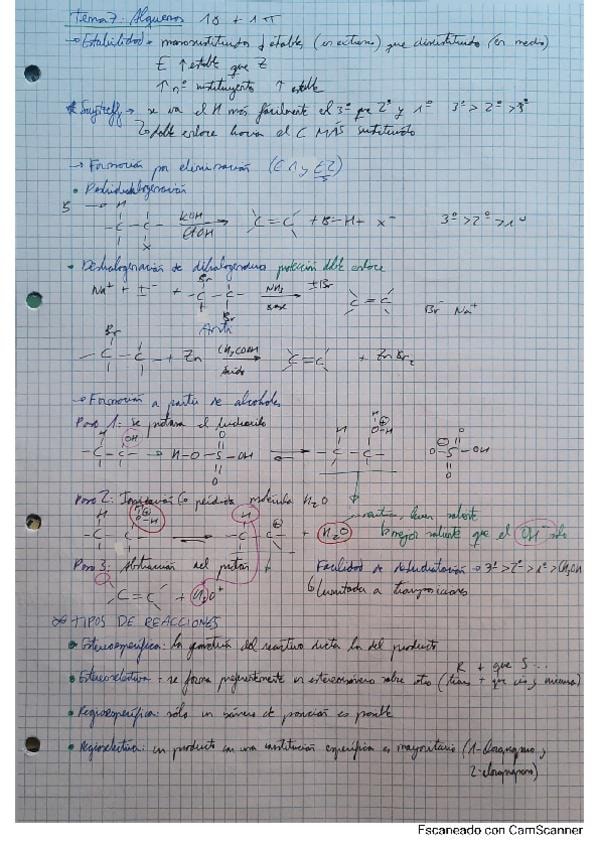 Tema 7: Alquenos 1σ + 1π
→ Estabilidad • monosustituidos ↓ estable (en extremo) que disustituido (en medio)
E ↑ estable que Z
↑ nº sustituyentes ↑ estable
→ se va el H más fácilmente el 3º que 2º y 1º 3º > 2º >
↳ doble enlace hacia el C MÁS sustituido
→ Formación por eliminación (E1 y E2)
• Deshidrohalogenación
B → H
- C - C - KOH EtOH → C = C + B-H + X⁻ 3º > 2º > 1º
X
• Deshalogenación de dihalogenuros protección doble enlace
Na⁺ + I⁻ + Br - C - C - Br → C = C Br⁻ Na⁺
Anti
Br
- C - C - + Zn CH₃COOH ácido → C = C + ZnBr₂
→ Formación a partir de alcoholes
Paso 1: se protona el hidroxilo
H OH O H H O-H ⊕ O
- C - C - H-O-S-OH ⇌ - C - C - ⊖ O-S-OH
O O
Paso 2: Ionización (o pérdida molécula H₂O
reactivo, buen saliente
H H O-H ⊕ H ⊕ + H₂O ↳ mejor saliente que el OH⁻ solo
- C - C - ⇌ - C - C
Paso 3: Abstracción del protón Facilidad de deshidratación → 3º > 2º > 1º > CH₃OH
C = C + H₃O⁺ ↳ limitada a transposiciones
TIPOS DE REACCIONES
• Estereoespecífica: la geometría del reactivo dicta la del producto
R + que S...
• Estereoselectiva: se forma preferentemente un estereoisómero sobre otro (trans + que cis y
• Regioespecífica: sólo un isómero de posición es posible
• Regioselectiva: un producto con una constitución específica es mayoritario (1-cloropropano y
2-cloropropano)
Escaneado con CamScanner